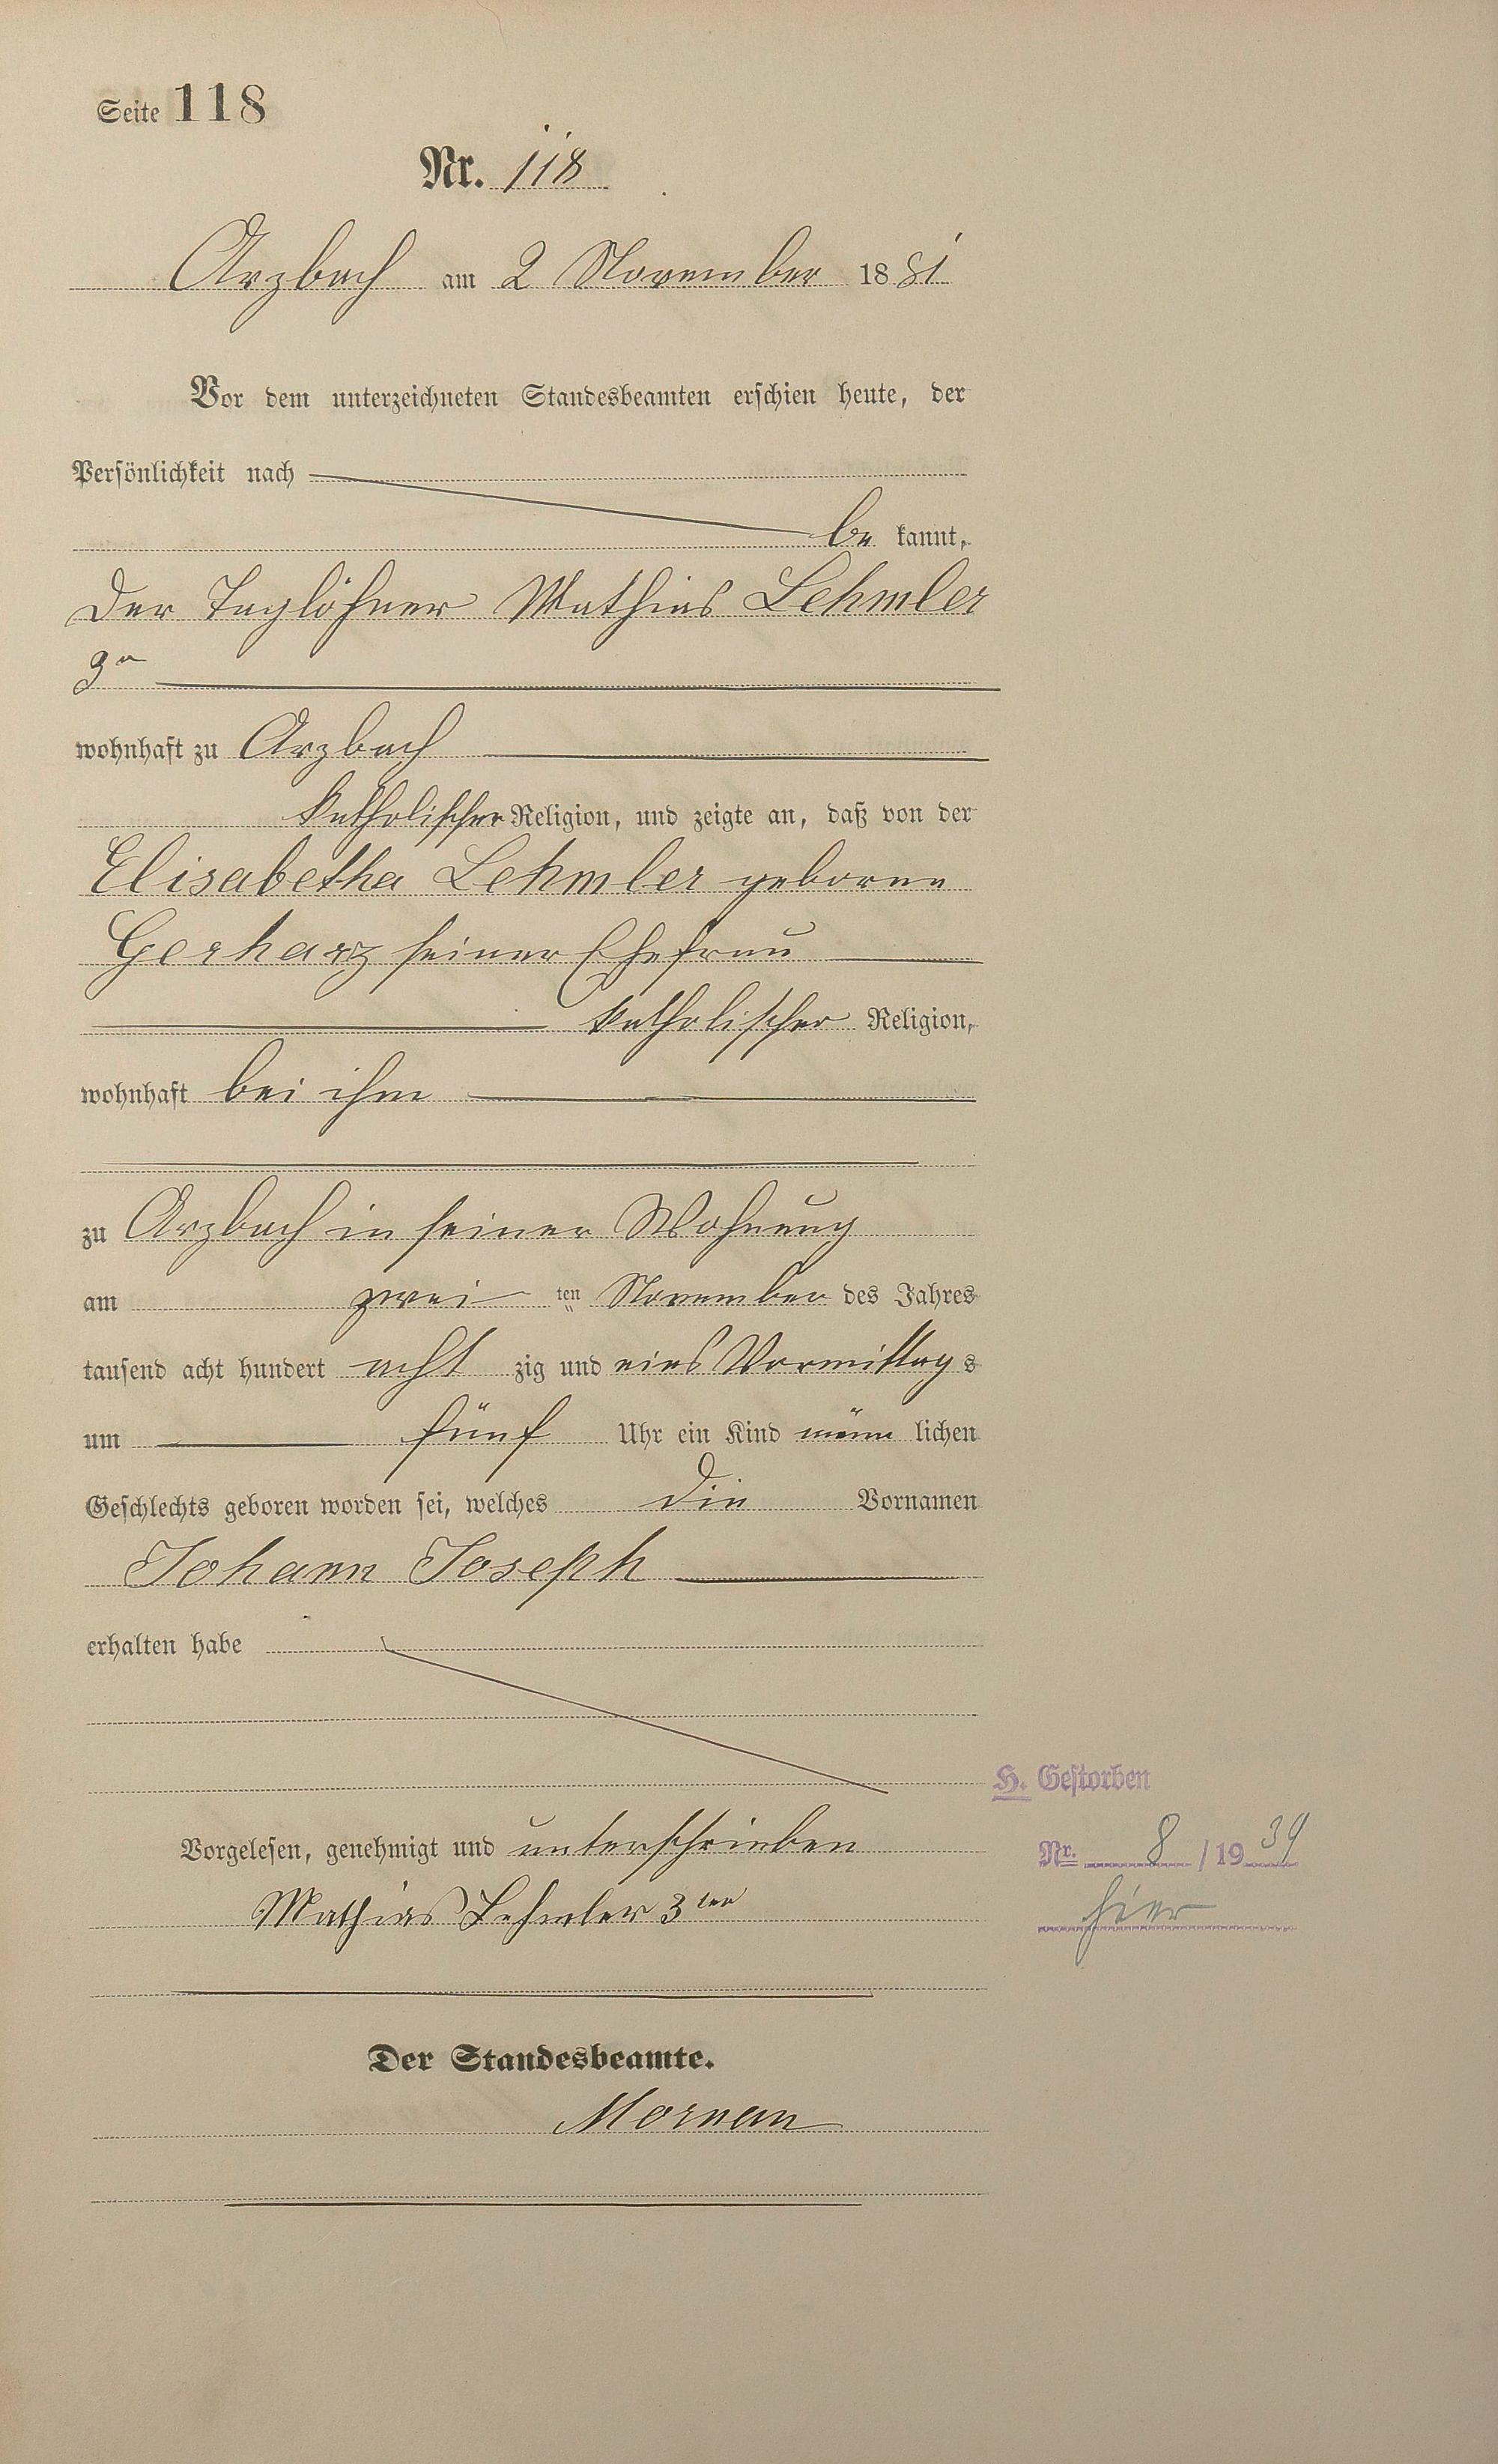 Seite 118
Nr. 118
Arzbach am 2 November 1881
Vor dem unterzeichneten Standesbeamten erschien heute, der
Persönlichkeit nach
be kannt,
der Taglöhner Mathias Lehmler
3r
wohnhaft zu Arzbach
katholischer Religion, und zeigte an, daß von der
Elisabetha Lehmler geborne
Gerharz seiner Ehefrau
katholischer Religion,
wohnhaft bei ihm
zu Arzbach in seiner Wohnung
am zwei ten November des Jahres
tausend acht hundert acht zig und eins Vormittag s
um fünf Uhr ein Kind männ lichen
Geschlechts geboren worden sei, welches die Vornamen
Johann Joseph
erhalten habe
Vorgelesen, genehmigt und unterschrieben
Mathias Lehmler 3ter
H. Gestorben
Nr. 8 / 1939
hier
Der Standesbeamte.